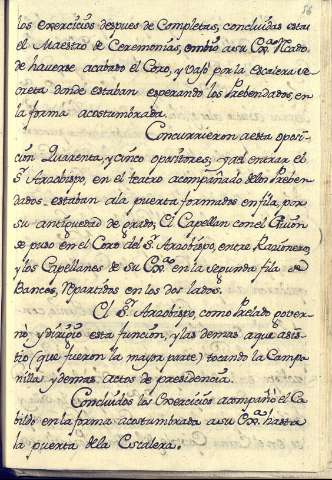 56
los exercicios despues de Completas, concluidas estas
el Maestro de Ceremonias, embio a su Exª. Recado,
de haverse acabado el Coro, y vajó por la escalera se
creta donde estaban esperando los Prebendados, en
la forma acostumbrada.
Concurrieron a esta oposi-
cion Quarenta, y cinco opositores, y al entrar el
Sr. Arzobispo, en el teatro acompañado de los Preben
dados, estaban a la puerta formados en fila, por
su antiguedad de grado, El Capellan con el Guion
se puso en el Coro del Sr. Arzobispo, entre Racioneros
y los Capellanes de su Exª. en la segunda fila de
Bancos, Repartidos en los dos lados.
El Sr. Arzobispo, como Prelado gover-
nó, y dirigio esta funcion, y las demas a que asis-
tió (que fueron la mayor parte) tocando la Campa-
nilla, y demas actos de presidencia.
Concluidos los Exercicios acompañó el Ca
bildo en la forma acostumbrada a su Exª. hasta
la puerta de la Escalera.